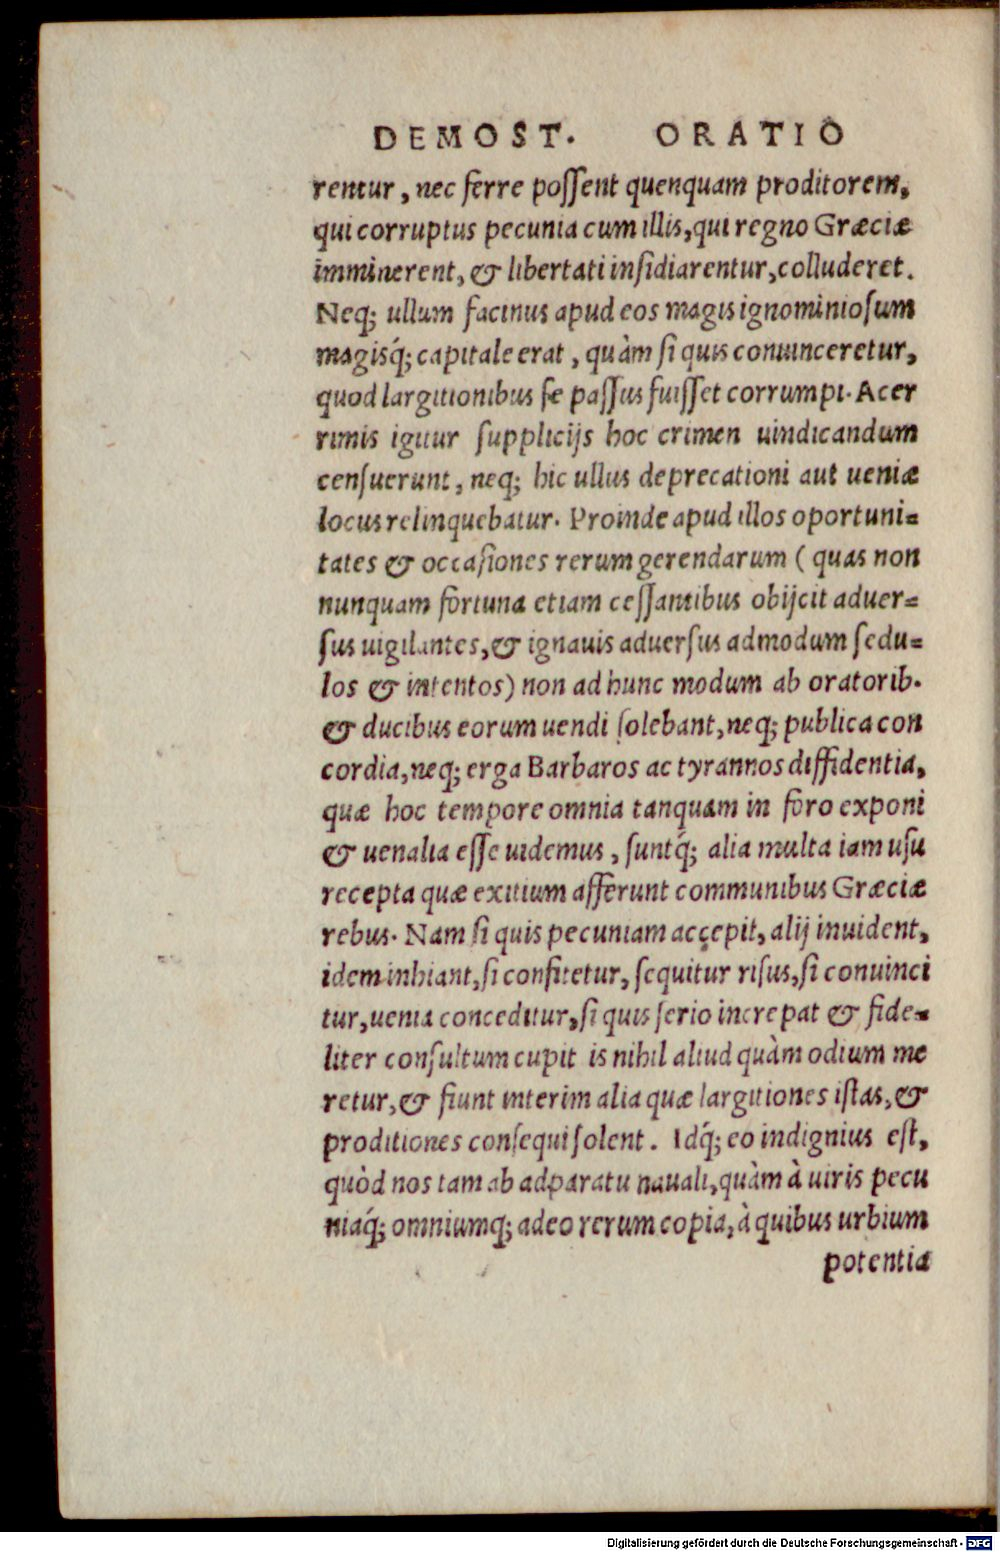 DEMOST. ORATIO
rentur, nec ferre poſſent quenquam proditorem,
qui corruptus pecunia cum illis, qui regno Græciæ
imminerent, & libertati inſidiarentur, colluderet.
Neq; ullum facinus apud eos magis ignominioſum
magisq́; capitale erat, quàm ſi quis conuinceretur,
quod largitionibus ſe paſſus fuiſſet corrumpi. Acer
rimis igitur ſupplicijs hoc crimen uindicandum
cenſuerunt, neq; hic ullus deprecationi aut ueniæ
locus relinquebatur. Proinde apud illos oportuni=
tates & occaſiones rerum gerendarum ( quas non
nunquam fortuna etiam ceſſantibus obijcit aduer=
ſus uigilantes, & ignauis aduerſus admodum ſedu=
los & intentos) non ad hunc modum ab oratorib.
& ducibus eorum uendi ſolebant, neq; publica con
cordia, neq; erga Barbaros ac tyrannos diffidentia,
quæ hoc tempore omnia tanquam in foro exponi
& uenalia eſſe uidemus, ſuntq́; alia multa iam uſu
recepta quæ exitium afferunt communibus Græciæ
rebus. Nam ſi quis pecuniam accępit, alij inuident,
idem inhiant, ſi confitetur, ſequitur riſus, ſi conuinci
tur, uenia conceditur, ſi quis ſerio increpat & fide=
liter conſultum cupit is nihil aliud quàm odium me
retur, & fiunt interim alia quæ largitiones iſtas, &
proditiones conſequi ſolent. Idq́; eo indignius eſt,
quòd nos tam ab adparatu nauali, quàm à uiris pecu
niaq́; omniumq; adeo rerum copia, à quibus urbium
potentia
Digitalisierung gefördert durch die Deutsche Forschungsgemeinschaft - DFG